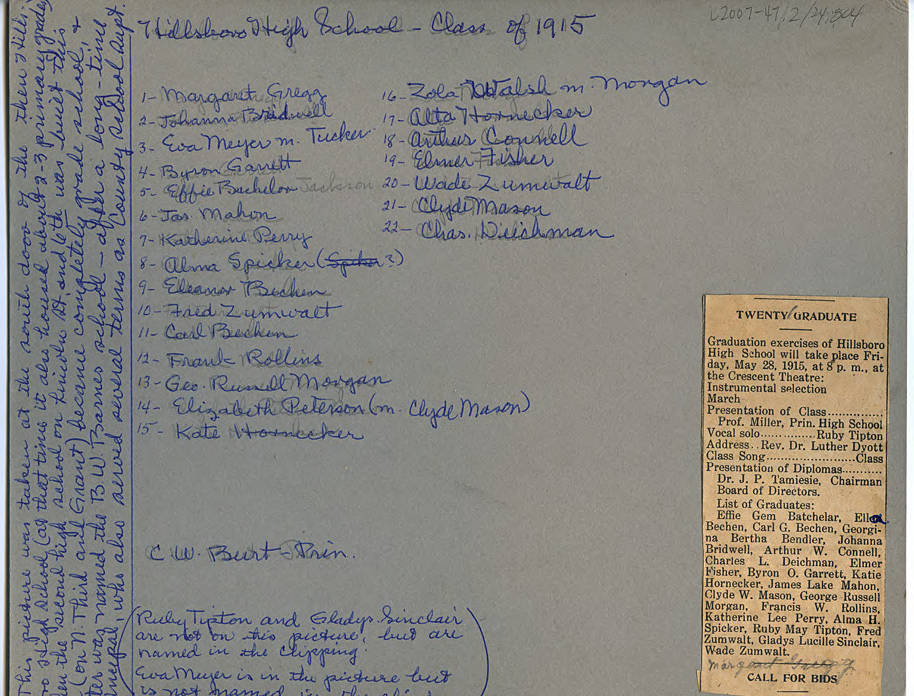 L2007-47/2/24,804
Hillsboro High School - Class of 1915
1- Margaret Gregg
2- Johanna Bridwell
3- Eva Meyer m. Tucker
4- Byron Garrett
5- Effie Bachelor Jackson
6- Jas. Mahon
7- Katherine Perry
8- Alma Spicker (Spiker?)
9- Eleanor Bechen
10- Fred Zumwalt
11- Carl Bechen
12- Frank Rollins
13- Geo. Russell Morgan
14- Elizabeth Peterson (m. Clyde Mason)
15- Kate Hornecker
16- Zola Walsh m. Morgan
17- Alta Hornecker
18- Arthur Connell
19- Elmer Fisher
20- Wade Zumwalt
21- Clyde Mason
22- Chas. Deichman
C. W. Burt - Prin.
(Ruby Tipton and Gladys Sinclair
are not on this picture, but are
named in the clipping.
Eva Meyer is in the picture but
is not named in the
This picture was taken at the south door of the then Hills-
o High School (at that time it also housed about 2-3 primary grades
the second high school on Lincoln St. and 6th was built this
(on N. Third and Grant) became completely grade school, &
ter was named the B.W. Barnes school - after a long-time
ncipal, who also served several terms as County School Supt.
TWENTY GRADUATE
Graduation exercises of Hillsboro
High School will take place Fri-
day, May 28, 1915, at 8 p. m., at
the Crescent Theatre:
Instrumental selection
March
Presentation of Class............
Prof. Miller, Prin. High School
Vocal solo.............Ruby Tipton
Address..Rev. Dr. Luther Dyott
Class Song.....................Class
Presentation of Diplomas..........
Dr. J. P. Tamiesie, Chairman
Board of Directors.
List of Graduates:
Effie Gem Batchelar, Ellen
Bechen, Carl G. Bechen, Georgi-
na Bertha Bendler, Johanna
Bridwell, Arthur W. Connell,
Charles L. Deichman, Elmer
Fisher, Byron O. Garrett, Katie
Hornecker, James Lake Mahon,
Clyde W. Mason, George Russell
Morgan, Francis W. Rollins,
Katherine Lee Perry, Alma H.
Spicker, Ruby May Tipton, Fred
Zumwalt, Gladys Lucille Sinclair,
Wade Zumwalt.
Margaret Gregg
CALL FOR BIDS